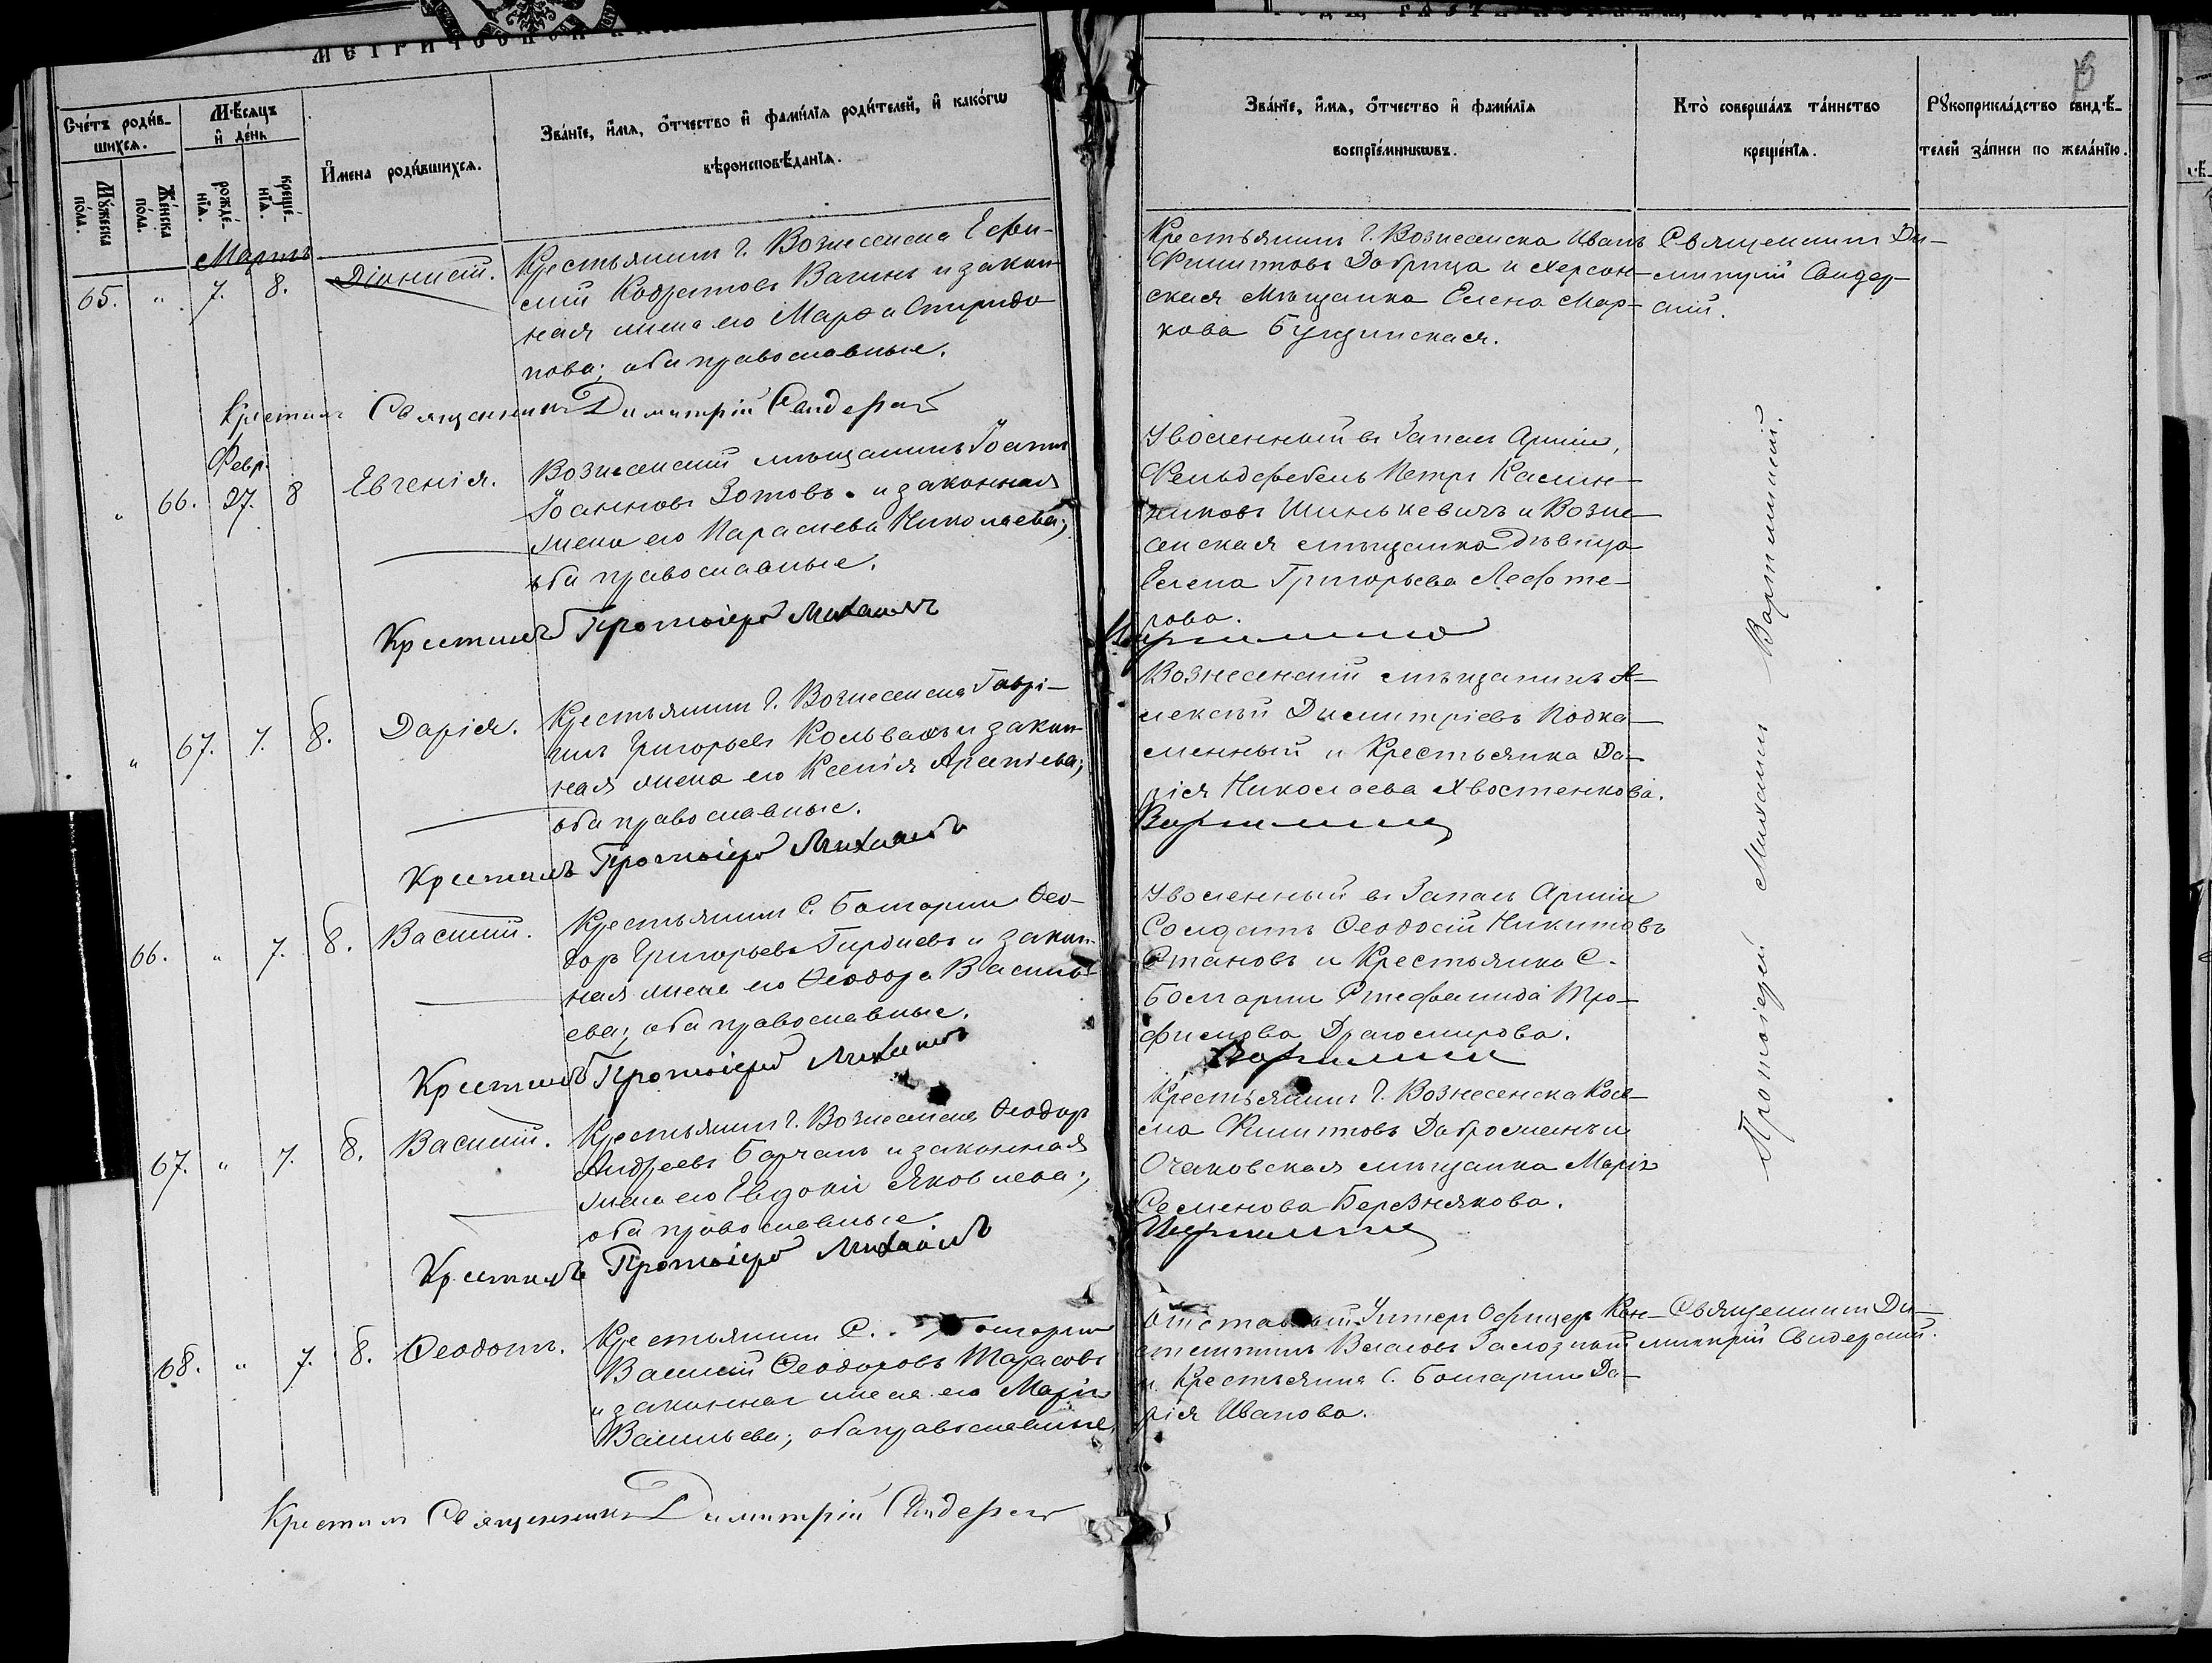 Счетъ родив-
шихся.
Мѣсяцъ
и день
Мужеска
пола.
Женска
пола.
рожде-
нія.
креще-
нія.
Имена родившихся.
Званіе, имя, отчество и фамилія родителей, и какого
вѣроисповѣданія.
Мартъ
65. " 7. 8. Діонисій.
Крестьянинъ г. Вознесенска Евфи-
мій Кодратовъ и закон-
ная жена его Марѳа Спиридо
нова; оба православные.
Крестилъ Священникъ Димитрій Свидерскій
Февр.
" 66. 27. 8 Евгенія.
Вознесенскій мѣщанинъ Іоаннъ
Іоанновъ Зотовъ и законная
жена его Параскева Николаева;
оба православные.
Крестилъ Протоіерей Михаилъ
" 67. 7. 8. Дарія.
Крестьянинъ г. Вознесенска Гаврі-
илъ Григорьевъ и закон-
ная жена его Ксенія Арсеніева;
оба православные.
Крестилъ Протоіерей Михаилъ
66. " 7. 8. Василій.
Крестьянинъ С. Болгарки Ѳео-
доръ Григорьевъ и закон-
ная жена его Ѳеодора Василь-
ева; оба православные.
Крестилъ Протоіерей Михаилъ
67. " 7. 8. Василій.
Крестьянинъ г. Вознесенска Ѳеодоръ
Андреевъ Барчанъ и законная
жена его Евдокія Яковлева;
оба православные.
Крестилъ Протоіерей Михаилъ
68. " 7. 8. Ѳеодотъ.
Крестьянинъ С.
Василій Ѳеодоровъ Тарасовъ
и законная жена его Марія
Васильева; оба православные
Крестилъ Священникъ Димитрій Свидерскій
Званіе, имя, отчество и фамилія
воспріемниковъ.
Кто совершалъ таинство
крещенія.
Рукоприкладство свидѣ-
телей записи по желанію.
Крестьянинъ г. Вознесенска Иванъ
Филипповъ Добрица и Херсон-
ская Мѣщанка Елена Мар-
кова Бущинская.
Священникъ Ди-
митрій Свидер-
скій.
Уволенный въ Запасъ Арміи,
Фельдфебель Петръ Калин-
никовъ Шинькевичъ и Возне-
сенская мѣщанка дѣвица
Елена Григорьева Лефте-
рова.
Вознесенскій мѣщанинъ А-
лексѣй Димитріевъ Подка-
менный и Крестьянка Да-
рія Николаева Хвостенкова.
Уволенный въ Запасъ Арміи
Солдатъ Ѳеодосій Никитовъ
Становъ и Крестьянка С.
Болгарки Стефанида Тро-
фимова Драгомирова.
Крестьянинъ г. Вознесенска Косъ-
ма Филипповъ Доброманъ и
Очаковская мѣщанка Марія
Семенова Березнякова.
Протоіерей Михаилъ
Отставной Унтеръ Офицеръ Кон-
стантинъ Власовъ
и Крестьянка С. Болгарки Да-
рія Иванова.
Священникъ Ди-
митрій Свидерскій.